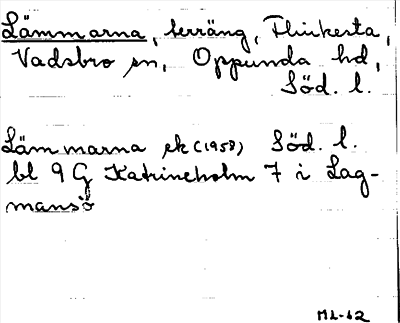 Lämmarna, terräng, Flinkesta,
Vadsbro sn, Oppunda hd,
Söd. l.
Lämmarna ek (1958) Söd. l.
bl 9 G Katrineholm 7 i Lag-
mansö
ML-62